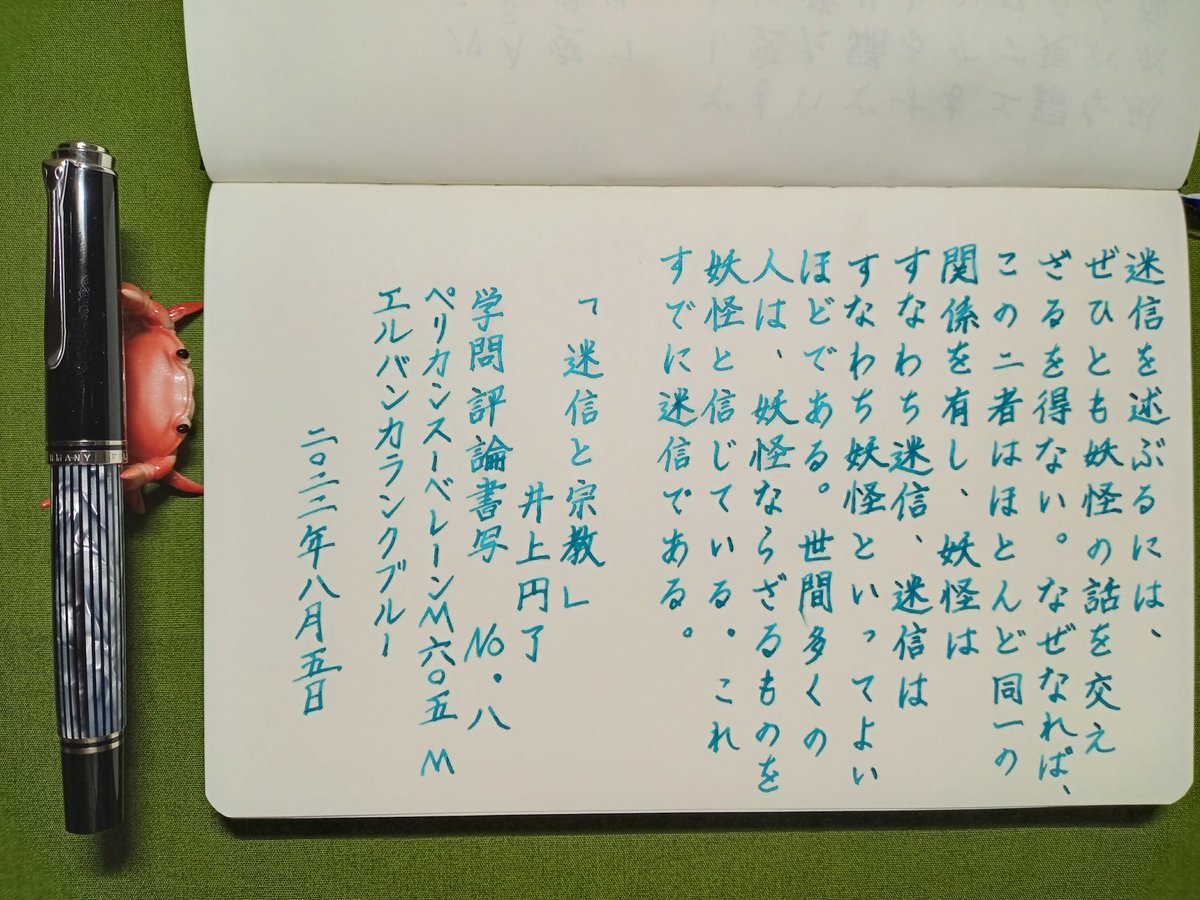 迷信を述ぶるには、
ぜひとも妖怪の話を交え
ざるを得ない。なぜなれば、
この二者はほとんど同一の
関係を有し、妖怪は
すなわち迷信、迷信は
すなわち妖怪といってよい
ほどである。世間多くの
人は、妖怪ならざるものを
妖怪と信じている。これ
すでに迷信である。
「迷信と宗教」
井上円了
学問評論書写 No.八
ペリカンスーベレーンM六〇五 M
エルバンカランクブルー
二〇二二年八月五日